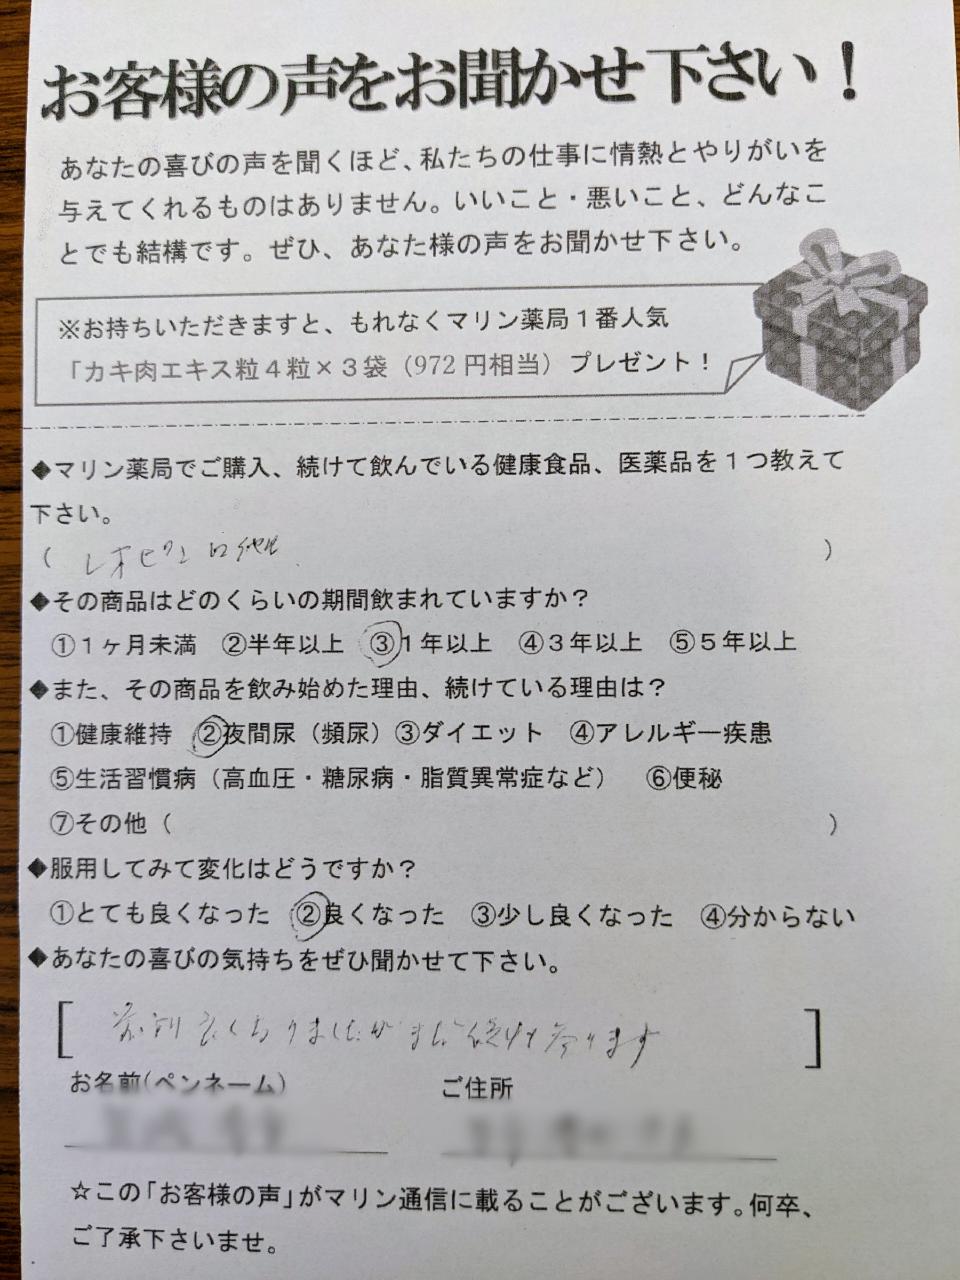 お客様の声をお聞かせ下さい！
あなたの喜びの声を聞くほど、私たちの仕事に情熱とやりがいを
与えてくれるものはありません。いいこと・悪いこと、どんなこ
とでも結構です。ぜひ、あなた様の声をお聞かせ下さい。
※お持ちいただきますと、もれなくマリン薬局１番人気
「カキ肉エキス粒４粒×３袋（972円相当）プレゼント！
◆マリン薬局でご購入、続けて飲んでいる健康食品、医薬品を１つ教えて
下さい。
（ レオピン ）
◆その商品はどのくらいの期間飲まれていますか？
①１ヶ月未満 ②半年以上 ③１年以上 ④３年以上 ⑤５年以上
◆また、その商品を飲み始めた理由、続けている理由は？
①健康維持 ②夜間尿（頻尿）③ダイエット ④アレルギー疾患
⑤生活習慣病（高血圧・糖尿病・脂質異常症など） ⑥便秘
⑦その他（ ）
◆服用してみて変化はどうですか？
①とても良くなった ②良くなった ③少し良くなった ④分からない
◆あなたの喜びの気持ちをぜひ聞かせて下さい。
[ 良くなりましたが まだ 続けて ]
お名前(ペンネーム) ご住所
☆この「お客様の声」がマリン通信に載ることがございます。何卒、
ご了承下さいませ。